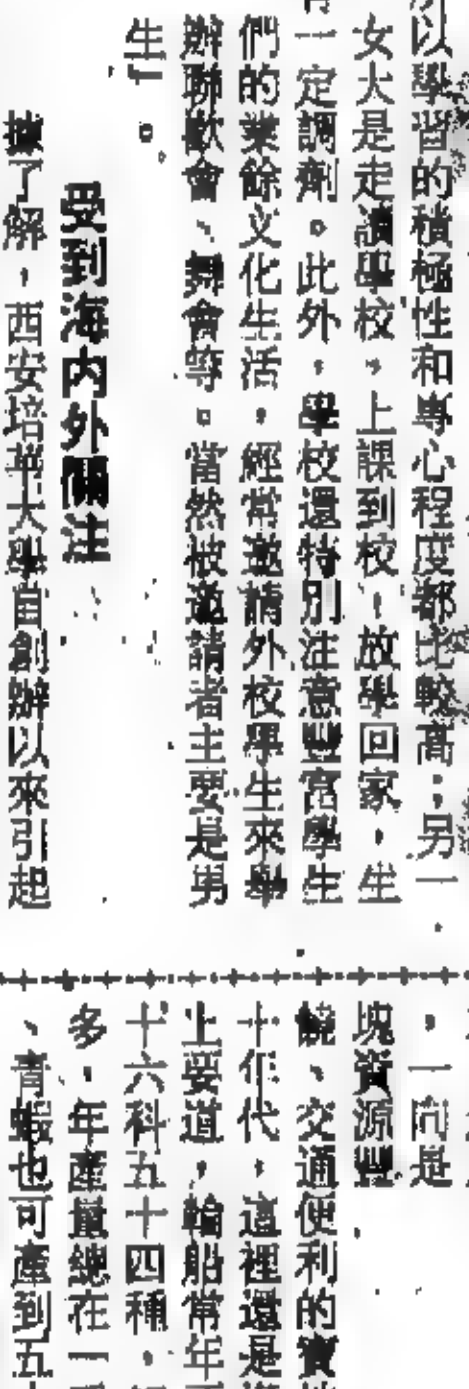 所以學習的積極性和專心程度都比較高；另一
女大是走讀學校，上課到校，放學回家，生
有一定調劑。此外，學校還特別注意豐富學生
們的業餘文化生活，經常邀請外校學生來舉
辦聯歡會、舞會等。當然被邀請者主要是男
生」。
受到海內外關注
據了解，西安培華大學自創辦以來引起
，一向是
塊資源豐
饒、交通便利的寶
十年代，這裡還是
上要道，輪船常年
十六科五十四種，
多，年產量總在一
、青蝦也可產到五